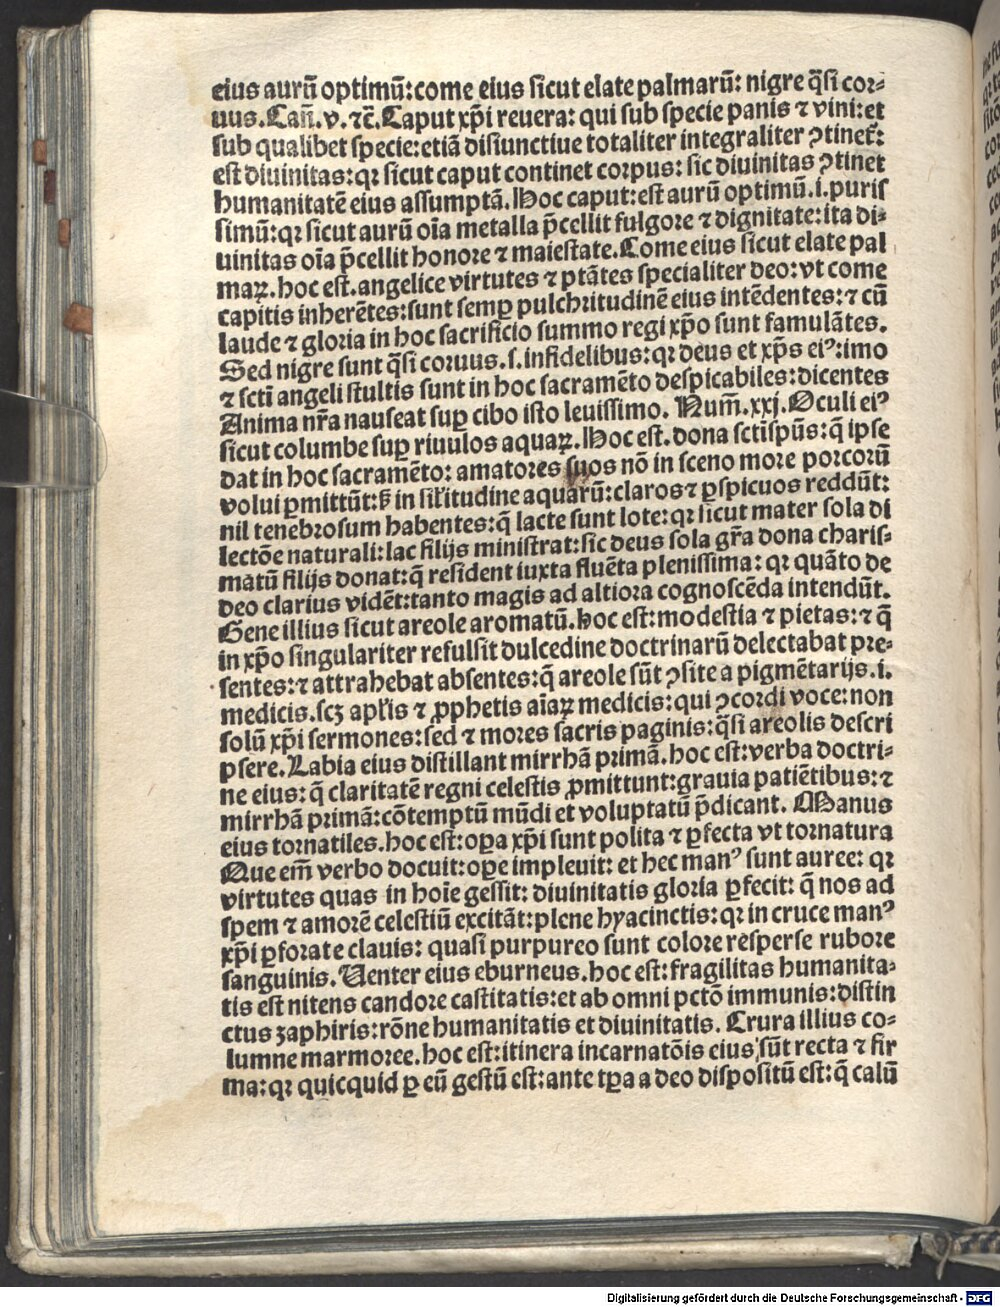 eius aurū optimū: come eius sicut elate palmarū: nigre q̄si cor⸗
uus. Cañ. v. ⁊c̄. Caput xp̄i reuera: qui sub specie panis ⁊ vini: et
sub qualibet specie: etiā disiunctiue totaliter integraliter ꝯtinet̄:
est diuinitas: qꝛ sicut caput continet corpus: sic diuinitas ꝯtinet
humanitatē eius assumptā. Hoc caput: est aurū optimū. i. puris
simū: qꝛ sicut aurū oīa metalla p̄cellit fulgore ⁊ dignitate: ita di⸗
uinitas oīa p̄cellit honore ⁊ maiestate. Come eius sicut elate pal
maꝝ. hoc est. angelice virtutes ⁊ ptāтes specialiter deo: vt come
capitis inherētes: sunt semꝑ pulchritudinē eius intēdentes: ⁊ cū
laude ⁊ gloria in hoc sacrificio summo regi xp̄o sunt famulātes.
Sed nigre sunt q̄si coruus. s. infidelibus: qꝛ deus et xp̄s eiꝰ: imo
⁊ scti angeli stultis sunt in hoc sacramēto despicabiles: dicentes
Anima nr̄a nauseat suꝑ cibo isto leuissimo. Num̄. xxj. Oculi eiꝰ
sicut columbe suꝑ riuulos aquaꝝ. Hoc est. dona sctīspūs: q̄ ipse
dat in hoc sacramēto: amatores suos nō in sceno more porcorū
volui ꝑmittūt: ꝫ in sil̄itudine aquarū: claros ⁊ ꝑspicuos reddūt:
nil tenebrosum habentes: q̄ lacte sunt lote: qꝛ sicut mater sola di
lectōe naturali: lac filijs ministrat: sic deus sola gr̄a dona charis⸗
matū filijs donat: q̄ resident iuxta fluēta plenissima: qꝛ quāto de
deo clarius vidēt: tanto magis ad altiora cognoscēda intendūt.
Gene illius sicut areole aromatū. hoc est: modestia ⁊ pietas: ⁊ q̄
in xp̄o singulariter refulsit dulcedine doctrinarū delectabat pre⸗
sentes: ⁊ attrahebat absentes: q̄ areole sūt ꝯsite a pigmētarijs. i.
medicis. scꝫ apl̄is ⁊ ꝓphetis aīaꝝ medicis: qui ꝯcordi voce: non
solū xp̄i sermones: sed ⁊ mores sacris paginis: q̄si areolis descri
psere. Labia eius distillant mirrhā primā. hoc est: verba doctri⸗
ne eius: q̄ claritatē regni celestis ꝓmittunt: grauia patiētibus: ⁊
mirrhā primā: cōtemptū mūdi et voluptatū p̄dicant. Manus
eius tornatiles. hoc est: oꝑa xp̄i sunt polita ⁊ ꝑfecta vt tornatura
Que em̄ verbo docuit: oꝑe impleuit: et hec manꝰ sunt auree: qꝛ
virtutes quas in hoīe gessit: diuinitatis gloria ꝑfecit: q̄ nos ad
spem ⁊ amorē celestiū excitāt: plene hyacinctis: qꝛ in cruce manꝰ
xp̄i ꝑforate clauis: quasi purpureo sunt colore resperse rubore
sanguinis. Venter eius eburneus. hoc est: fragilitas humanita⸗
tis est nitens candore castitatis: et ab omni pctō immunis: distin
ctus zaphiris: rōne humanitatis et diuinitatis. Crura illius co⸗
lumne marmoree. hoc est: itinera incarnatōis eius sūt recta ⁊ fir
ma: qꝛ quicquid ꝑ eū gestū est: ante tꝑa a deo dispositū est: q̄ calū
Digitalisierung gefördert durch die Deutsche Forschungsgemeinschaft - DFG